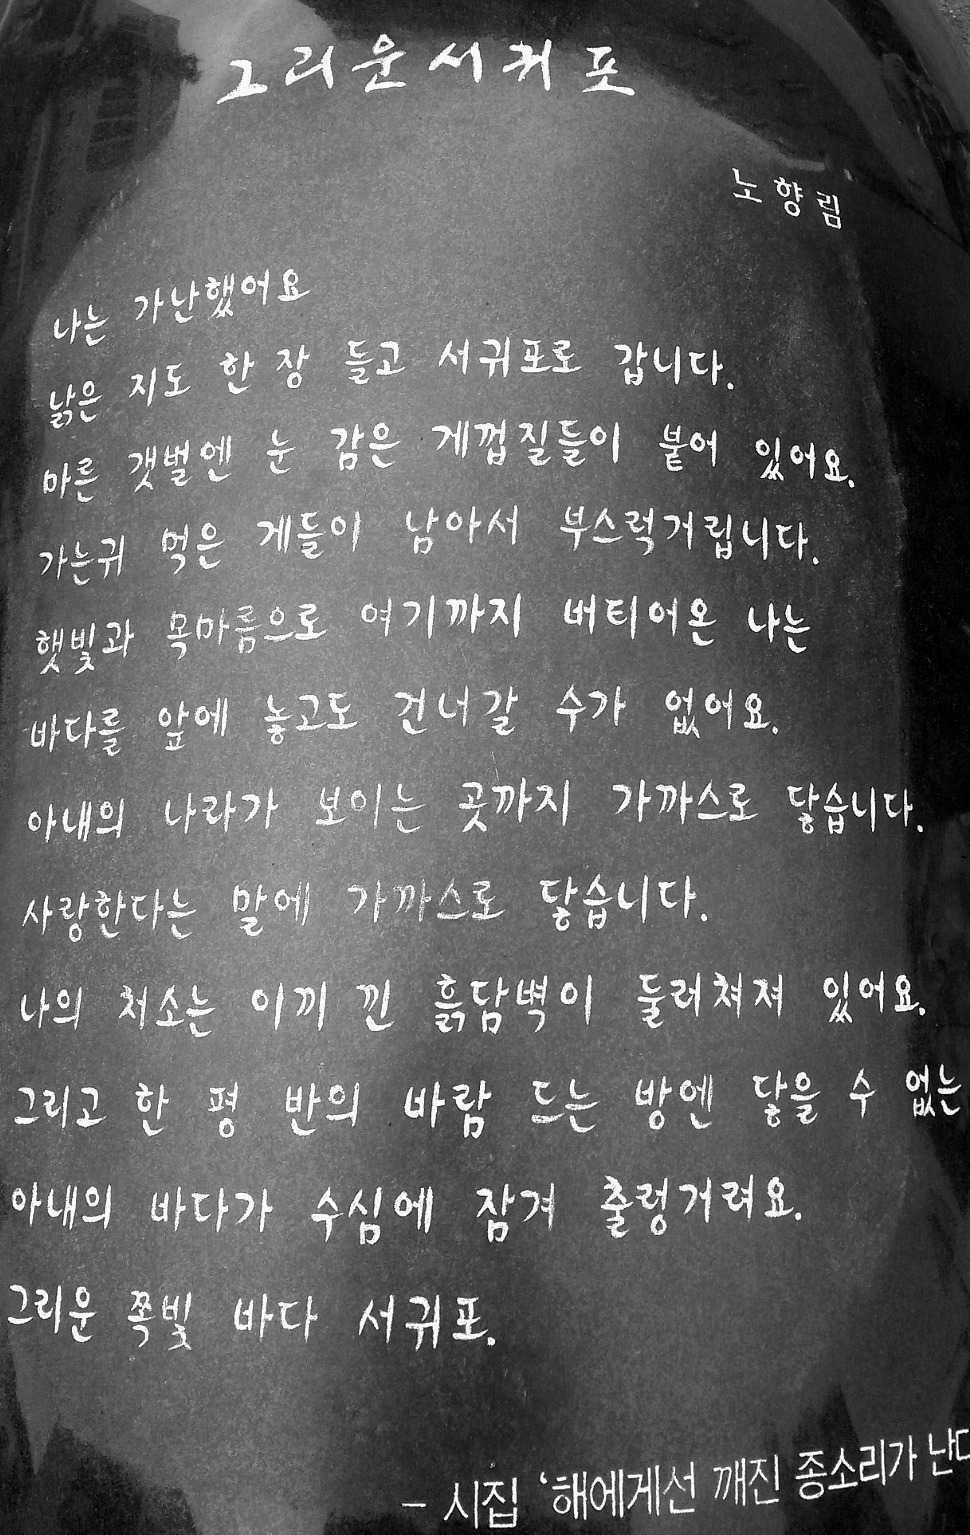 그리운 서귀포
노향림
나는 가난했어요
낡은 지도 한 장 들고 서귀포로 갑니다.
마른 갯벌엔 눈 감은 게껍질들이 붙어 있어요.
가는귀 먹은 게들이 남아서 부스럭거립니다.
햇빛과 목마름으로 여기까지 버티어온 나는
바다를 앞에 놓고도 건너갈 수가 없어요.
아내의 나라가 보이는 곳까지 가까스로 닿습니다.
사랑한다는 말에 가까스로 닿습니다.
나의 처소는 이끼 낀 흙담벽이 둘러쳐져 있어요.
그리고 한 평 반의 바람 드는 방엔 닿을 수 없는
아내의 바다가 수심에 잠겨 출렁거려요.
그리운 쪽빛 바다 서귀포.
- 시집 ‘해에게선 깨진 종소리가 난다